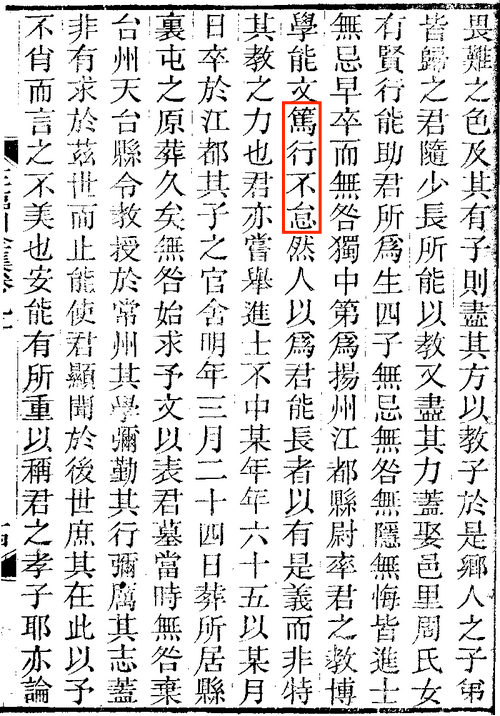 畏難之色及其有子則盡其方以教子於是鄉人之子弟
皆歸之君隨少長所能以教又盡其力蓋娶邑里周氏女
有賢行能助君所爲生四子無忌無咎無隱無悔皆進士
無忌早卒而無咎獨中第爲揚州江都縣尉率君之教博
學能文篤行不怠然人以爲君能長者以有是義而非特
其教之力也君亦嘗舉進士不中某年年六十五以某月
日卒於江都其子之官舍明年三月二十四日葬所居縣
裏屯之原葬久矣無咎始求予文以表君墓當時無咎棄
台州天台縣令教授於常州其學彌勤其行彌厲其志蓋
非有求於茲世而止能使君顯聞於後世庶其在此以予
不肖而言之不美也安能有所重以稱君之孝子耶亦論